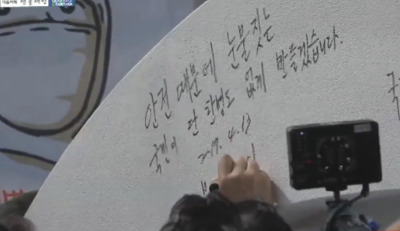 안전 때문에 눈물짓는
국민이 단 한명도 없게 만들겠습니다.
2017. 4. 13